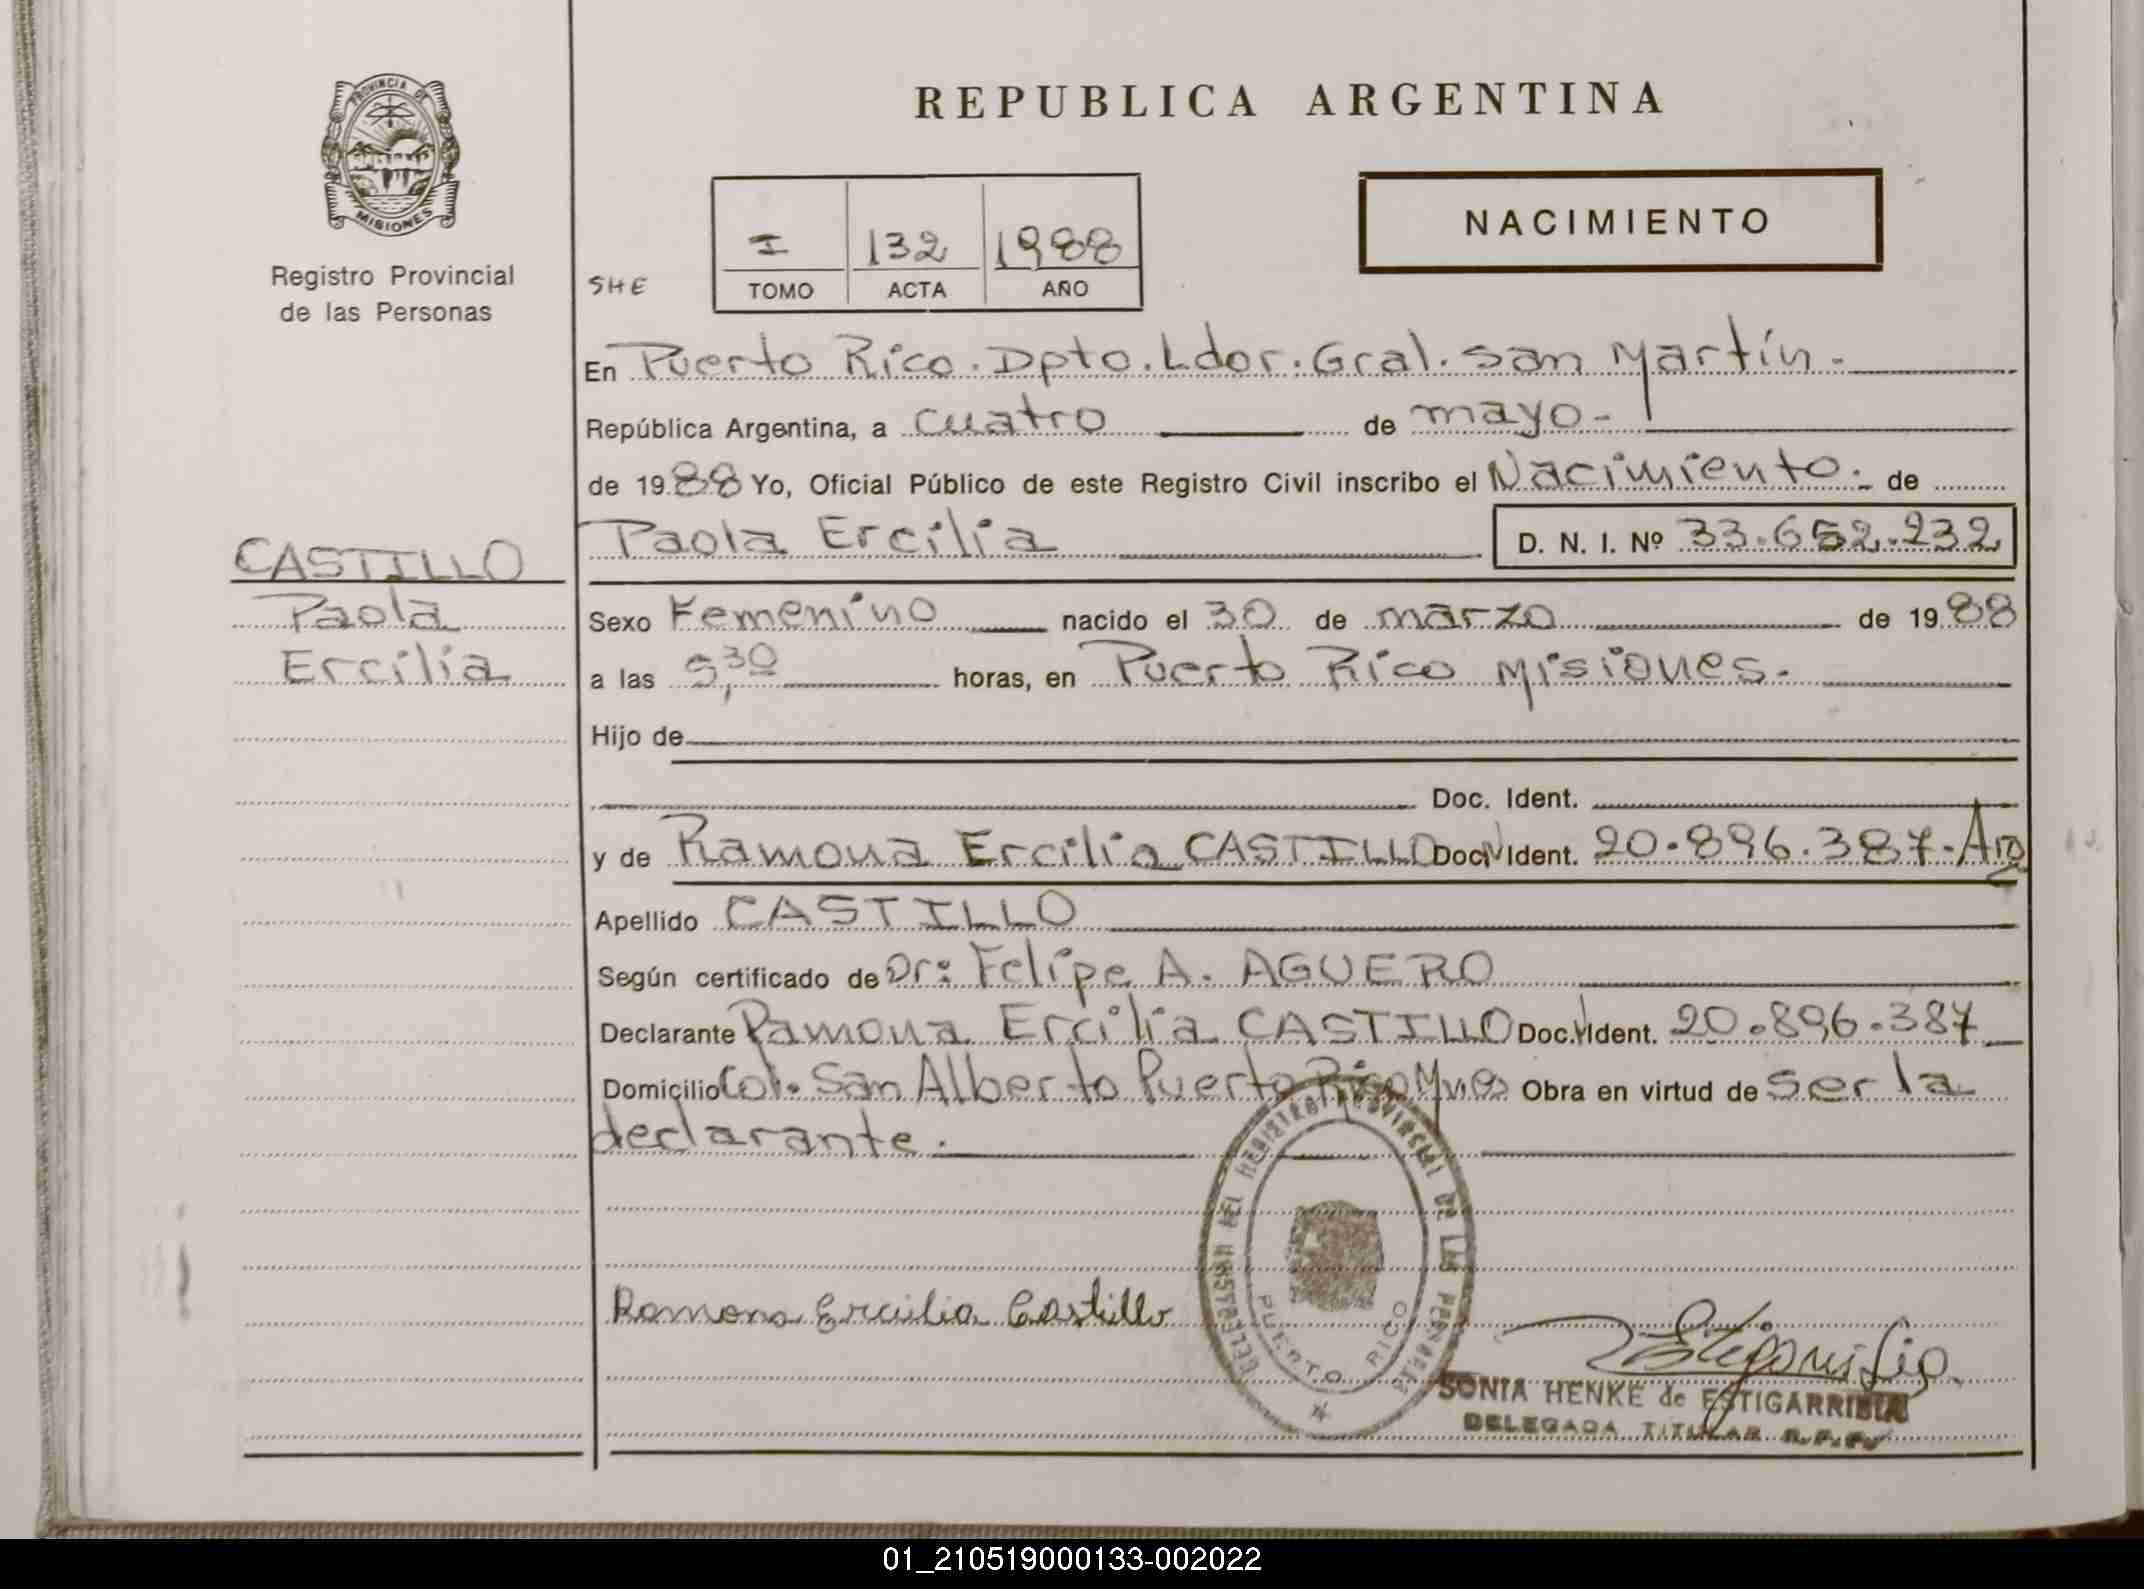 PROVINCIA DE
MISIONES
Registro Provincial
de las Personas
REPUBLICA ARGENTINA
NACIMIENTO
I 132 1988
TOMO ACTA AÑO
SHE
En Puerto Rico. Dpto. Ldor. Gral. San Martín.
República Argentina, a cuatro de mayo-
de 1988 Yo, Oficial Público de este Registro Civil inscribo el Nacimiento. de
Paola Ercilia D. N. I. Nº 33.652.232
CASTILLO
Paola
Ercilia
Sexo Femenino nacido el 30 de marzo de 1988
a las 5,30 horas, en Puerto Rico Misiones.
Hijo de
Doc. Ident.
y de Ramona Ercilia CASTILLO Doc. Ident. 20.896.387-Arg
Apellido CASTILLO
Según certificado de Dr: Felipe A. AGUERO
Declarante Ramona Ercilia CASTILLO Doc. Ident. 20.896.387
Domicilio Col. San Alberto Puerto Rico Mnes Obra en virtud de ser la
declarante.
DEL REGISTRO PROVINCIAL DE LAS PERSONAS
PUERTO RICO
Ramona Ercilia Castillo
SONIA HENKE de ESTIGARRIBIA
DELEGADA TITULAR R.P.P.
01_210519000133-002022